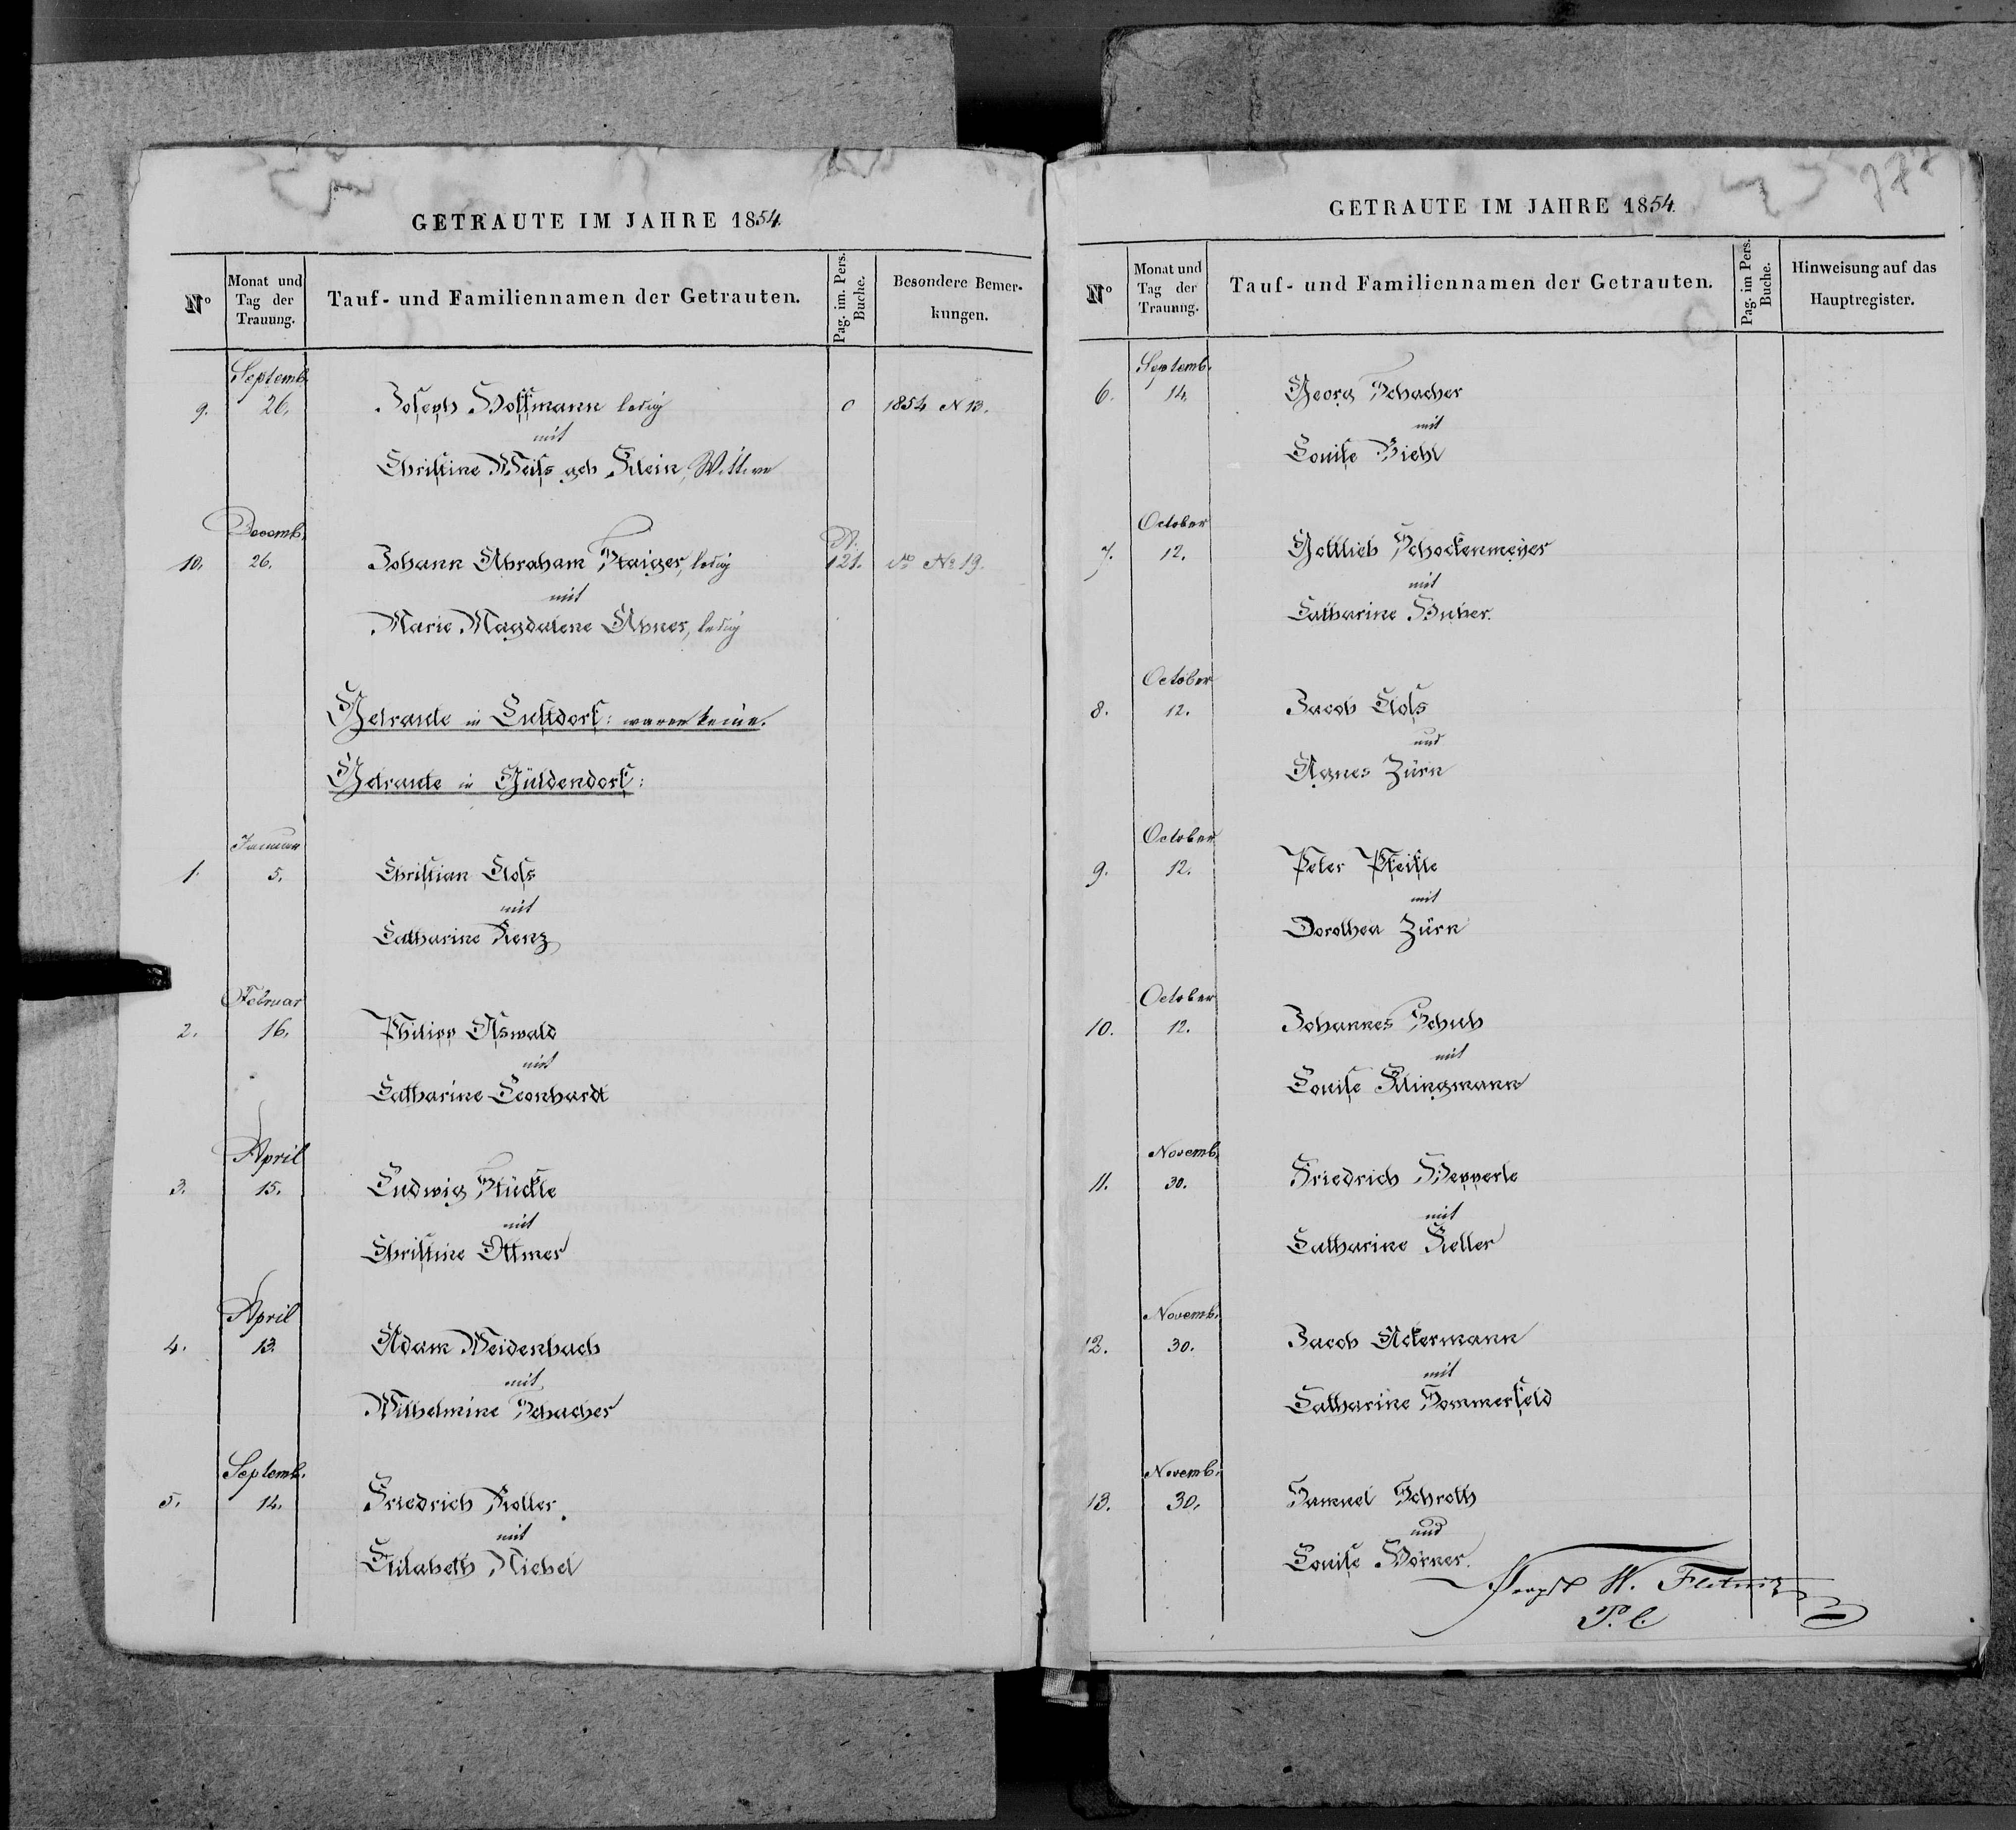 GETRAUTE IM JAHRE 1854.
Nº
Monat und Tag der Trauung.
Tauf- und Familiennamen der Getrauten.
Pag. im. Pers. Buche.
Besondere Bemer-
kungen.
Septemb.
9. 26. Joseph Bollmann ledig 0 1854 N 13.
mit
Christine Weiss geb Klein, Wittwe
Decemb.
A.
10. 26. Johann Abraham Staiger, ledig 121. do No 19.
mit
Marie Magdalene Abner, ledig
Getraute in Lustdorf: waren keine.
Getraute in Güldendorf:
Januar
1. 5. Christian Closs
mit
Catharine Renz
Februar
2. 16. Philipp Oswald
mit
Catharine Leonhardt
April
3. 15. Ludwig Stückle
mit
Christine Ottmer
April
4. 13. Adam Weidenbach
mit
Wilhelmine Schacher
Septemb.
5. 14. Friedrich Koller.
mit
Elisabeth Niebel
GETRAUTE IM JAHRE 1854.
Nº
Monat und Tag der Trauung.
Tauf- und Familiennamen der Getrauten.
Pag. im Pers. Buche.
Hinweisung auf das
Hauptregister.
Septemb.
6. 14. Georg Schacher
mit
Louise Biehl
October
7. 12. Gottlieb Schockenmeyer
mit
Catharine Huber.
October
8. 12. Jacob Closs
und
Agnes Zürn
October
9. 12. Peter Pfeifle
mit
Dorothea Zürn
October
10. 12. Johannes Schuh
mit
Louise Klingmann
Novemb.
11. 30. Friedrich Hepperle
mit
Catharine Keller
Novemb.
12. 30. Jacob Ackermann
mit
Catharine Sommerfeld
Novemb.
13. 30. Samuel Schroth
und
Louise Börner.
Propst W. Fletnitzer
P. l.